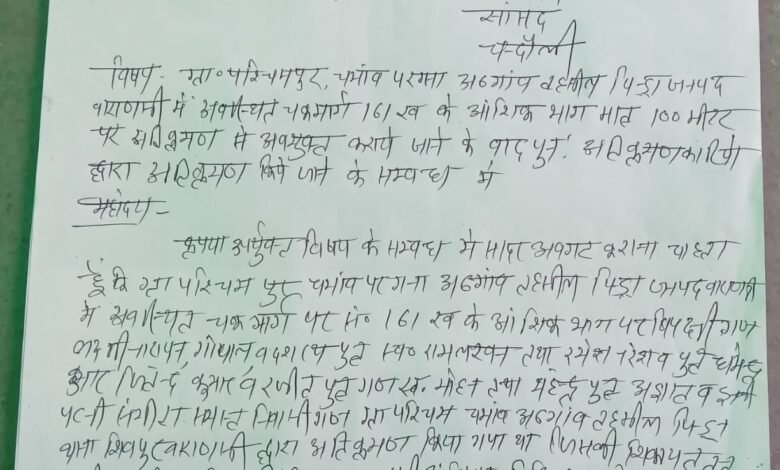 सांसद
चन्दौली
विषय- ग्रा० पश्चिमपुर, चमांव परगना अठगांव तहसील पिन्ड्रा जनपद
वाराणसी में अवस्थित चकमार्ग 161 ख के आंशिक भाग मात्र 100 मीटर
पर अतिक्रमण से अवमुक्त कराये जाने के बाद पुनः अतिक्रमणकारियों
द्वारा अतिक्रमण किये जाने के सम्बन्ध में
महोदय-
कृपया उपर्युक्त विषय के सम्बन्ध में सादर अवगत कराना चाहता
हूँ कि ग्रा पश्चिम पुर चमांव परगना अठगांव तहसील पिन्ड्रा जनपद वाराणसी
में अवस्थित चक मार्ग पर सं० 161 ख के आंशिक भाग पर विपक्षी गण
गोपाल व दशरथ पुत्र स्व० रामलखन तथा रमेश नरेश व पुत्र धर्मेन्द्र
कुमार व रंजीत पुत्र गण स्व. मोहन तथा महेन्द्र पुत्र अज्ञात व इनकी
पत्नी समस्त निवासीगण ग्रा पश्चिम चमांव अठगांव तहसील पिन्ड्रा
थाना शिवपुर वाराणसी द्वारा अतिक्रमण किया गया था जिसकी शिकायत